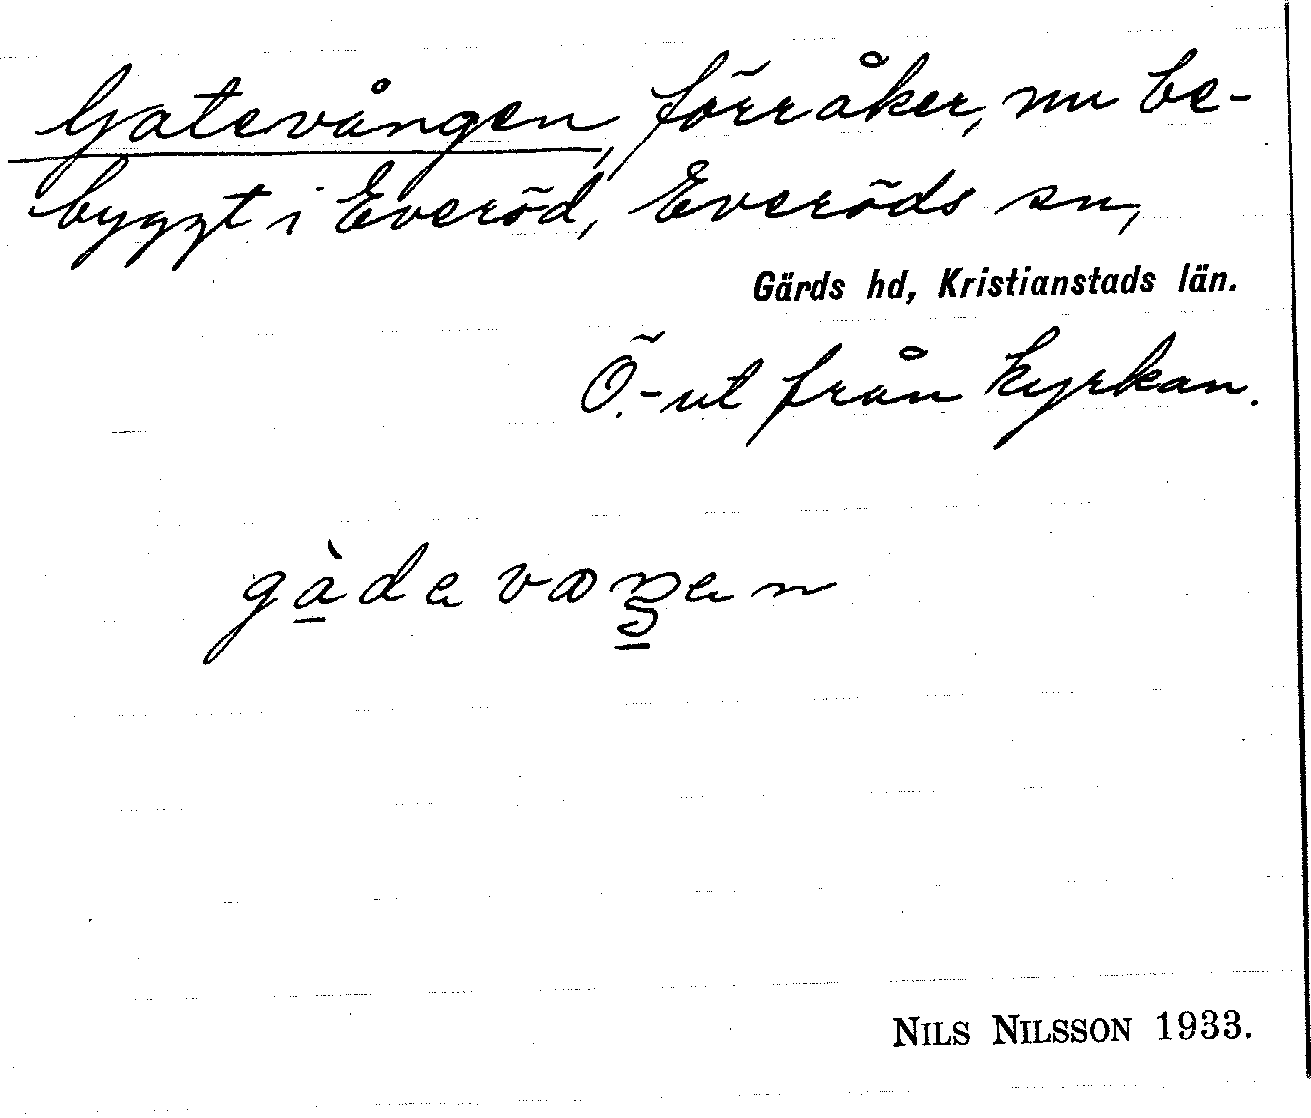 Gatevången, förråker, nu be-
byggt i Everöd, Everöds sn,
Gärds hd, Kristianstads län.
Ö.-ut från kyrkan.
NILS NILSSON 1933.